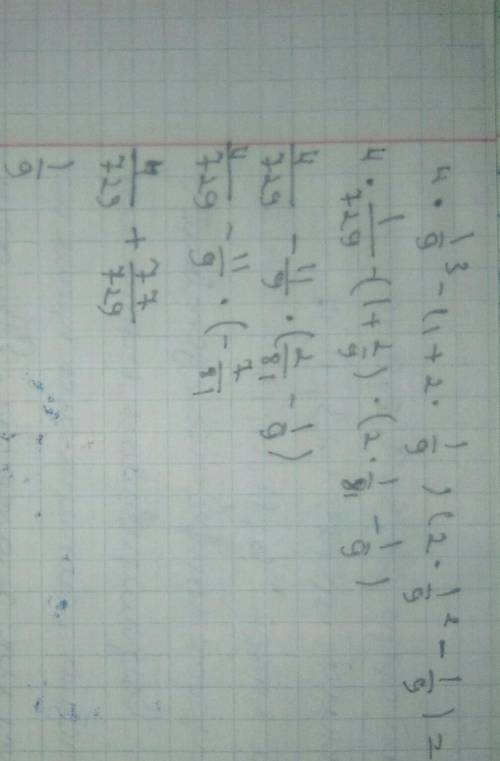 4 · 1/9³ - (1 + 2 · 1/9)(2 · 1/9² - 1/9) =
4 · 1/729 - (1 + 2/9) · (2 · 1/81 - 1/9)
4/729 - 11/9 · (2/81 - 1/9)
4/729 - 11/9 · (- 7/81)
4/729 + 77/729
1/9